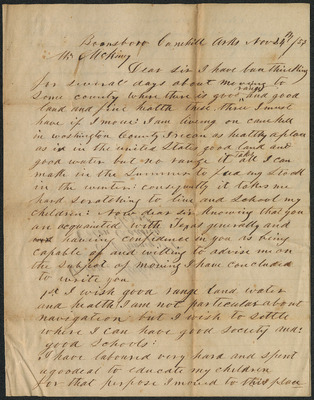 Boonsboro Canehill Arks Nov 24th /53
Mr McKiny
Dear sir I have bun thinking
for several days about moveing to
some country where thare is good range and good
land and fine health these three I must
have if I move: I am liveing on canehill
in washington County I recon as healthy a place
as is in the united States good land and
good water but no range it takes all I can
make in the Summer to feed my Stock
in the winter: consequntly it takes me
hard scratching to live and school my
children: Now dear sir knowing that you
are acquainted with Texas generally and
haveing confidence in you as being
capable of and willing to advise me on
the subject of moveing I have concluded
to write you
1st I wish good range land water
and health I am not particular about
navigation but I wish to settle
where I can have good society and
good schools:
I have laboured very hard and spent
a good eal to educate my children
for that purpose I moved to this place